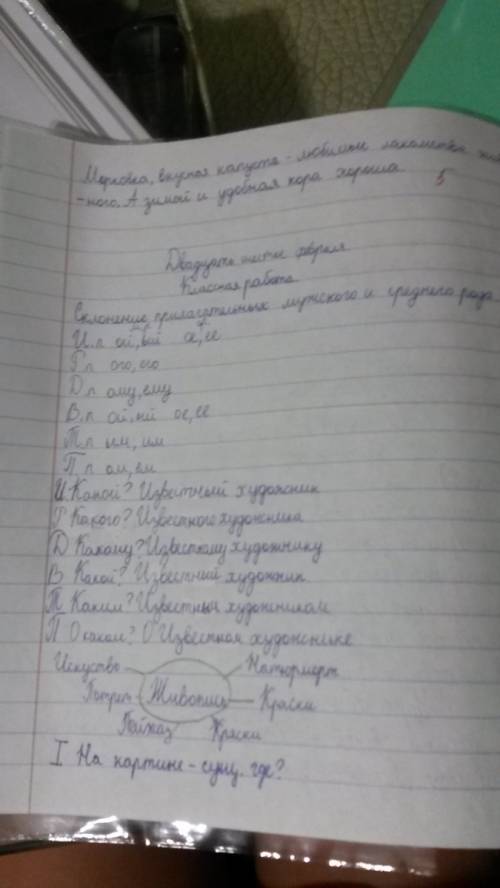 Морковка, вкусная капуста - любимые лакомства
-ного. А зимой и удобная кора хороша.
5
Двадцать шестое февраля
Классная работа
Склонение прилагательных мужского и среднего рода
И.п ой, ый ое, ее
Р.п ого, его
Д.п ому, ему
В.п ой, ый ое, ее
Т.п ым, им
П.п ом, ем
И. Какой? Известный художник
Р Какого? Известного художника
Д Какому? Известному художнику
В Какой? Известный художник
Т Каким? Известным художником
П О каком? О Известном художнике
Искуство Натюрморт
Живопись Краски
Пейзаз Краски
I На картине - сущ. где?